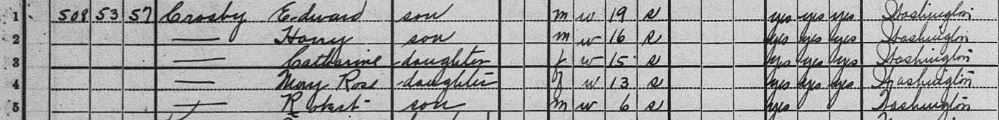 1 508 53 57 Crosby Edward son m w 19 s yes yes yes Washington
2 — Harry son m w 16 s yes yes yes Washington
3 — Catharine daughter f w 15 s yes yes yes Washington
4 — Mary Rose daughter f w 13 s yes yes yes Washington
5 — Robert son m w 6 s yes Washington